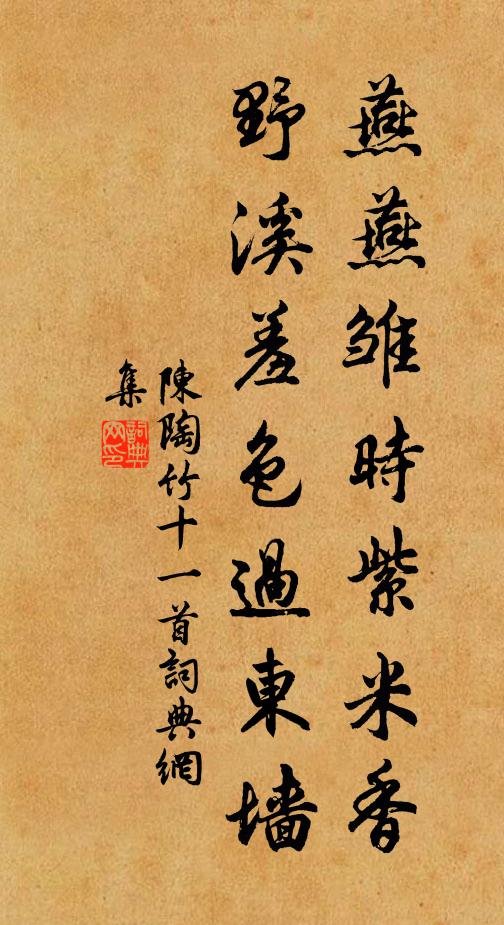 燕燕雛時紫米香
野溪羞色過東墻
陳陶竹十一首詞典網
集
詞典網印